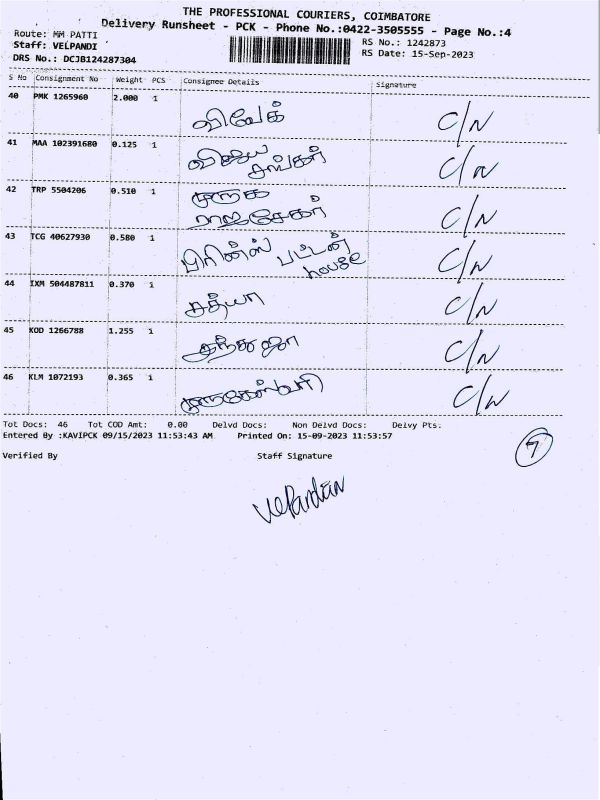 THE PROFESSIONAL COURIERS, COIMBATORE
Delivery Runsheet - PCK - Phone No.:0422-3505555 - Page No.:4
Route: MM PATTI
RS No.: 1242873
Staff: VELPANDI
RS Date: 15-Sep-2023
DRS No.: DCJB124287304
S No Consignment No Weight PCS Consignee Details Signature
40 PMK 1265960 2.000 1 விவேக் C/N
41 MAA 102391680 0.125 1 விஜய சங்கர் C/N
42 TRP 5504206 0.510 1 ராஜசேகர் C/N
43 TCG 40627930 0.580 1 பிரின்ஸ் பட்டன் house C/N
44 IXM 504487811 0.370 1 சத்யா C/N
45 KOD 1266788 1.255 1 C/N
46 KLM 1072193 0.365 1 முருகேஸ்வரி C/N
Tot Docs: 46 Tot COD Amt: 0.00 Delvd Docs: Non Delvd Docs: Delvy Pts:
Entered By :KAVIPCK 09/15/2023 11:53:43 AM Printed On: 15-09-2023 11:53:57
7
Verified By Staff Signature
VelPandian